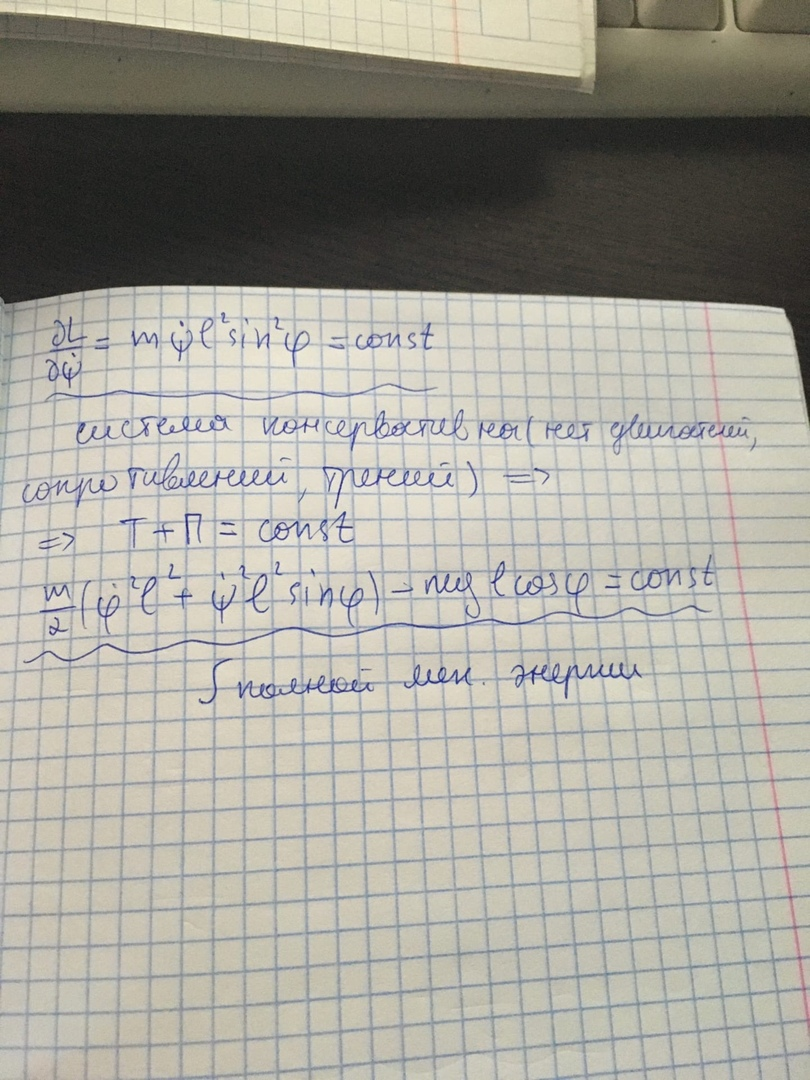 ∂L/∂ψ̇ = mψ̇l²sin²φ = const
система консервативна (нет двигателей,
сопротивлений, трений) =>
=> T + П = const
m/2 (φ̇²l² + ψ̇²l² sinφ) - mg l cosφ = const
∫ полной мех. энергии